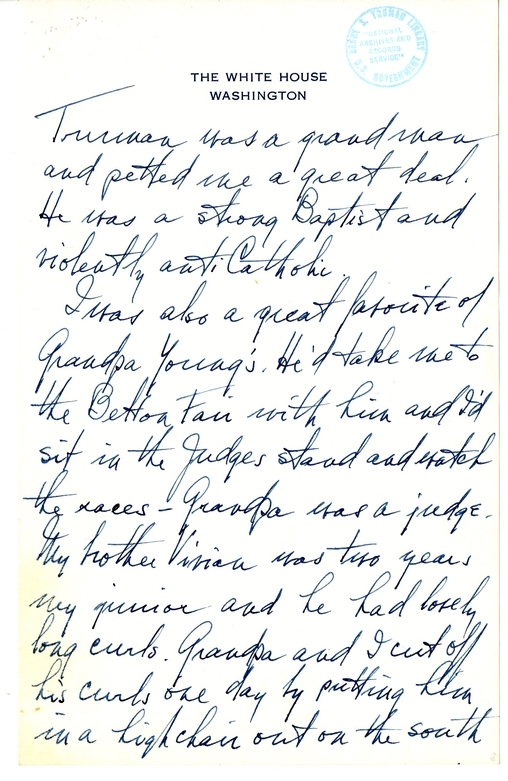 HARRY S. TRUMAN LIBRARY
"NATIONAL
ARCHIVES AND
RECORDS
SERVICE"
U.S. GOVERNMENT
THE WHITE HOUSE
WASHINGTON
Truman was a grand man
and petted me a great deal.
He was a strong Baptist and
violently anti Catholic.
I was also a great favorite of
Grandpa Young's. He'd take me to
the Belton Fair with him and I'd
sit in the Judges stand and watch
the races - Grandpa was a judge.
My brother Vivian was two years
my junior and he had lovely
long curls. Grandpa and I cut off
his curls one day by putting him
in a highchair out on the south